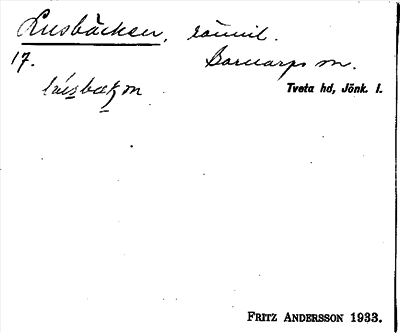 Lusbäcken, rännil.
17. Barnarps sn.
Tveta hd, Jönk. l.
FRITZ ANDERSSON 1933.